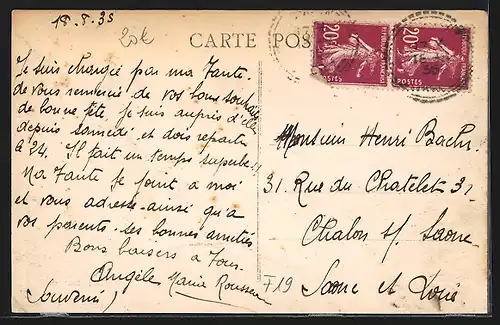 18-8-35
20k
CARTE POS
20c
POSTES
20c
POSTES
Je suis chargée par ma Tante
de vous remercier de vos bons souhaits
de bonne fête, je suis auprès d'elle
depuis samedi et dois repartir
le 24. Il fait un temps superbe
Ma Tante se joint à moi
et vous adresse ainsi qu'à
vos parents ses bonnes amitiés
Bons baisers à Tous.
Angèle Marie Rousseau
Souvenir
Monsieur Henri
31 Rue du Chatelet 31
Chalon s/ Saone
F19
Saone et Loire